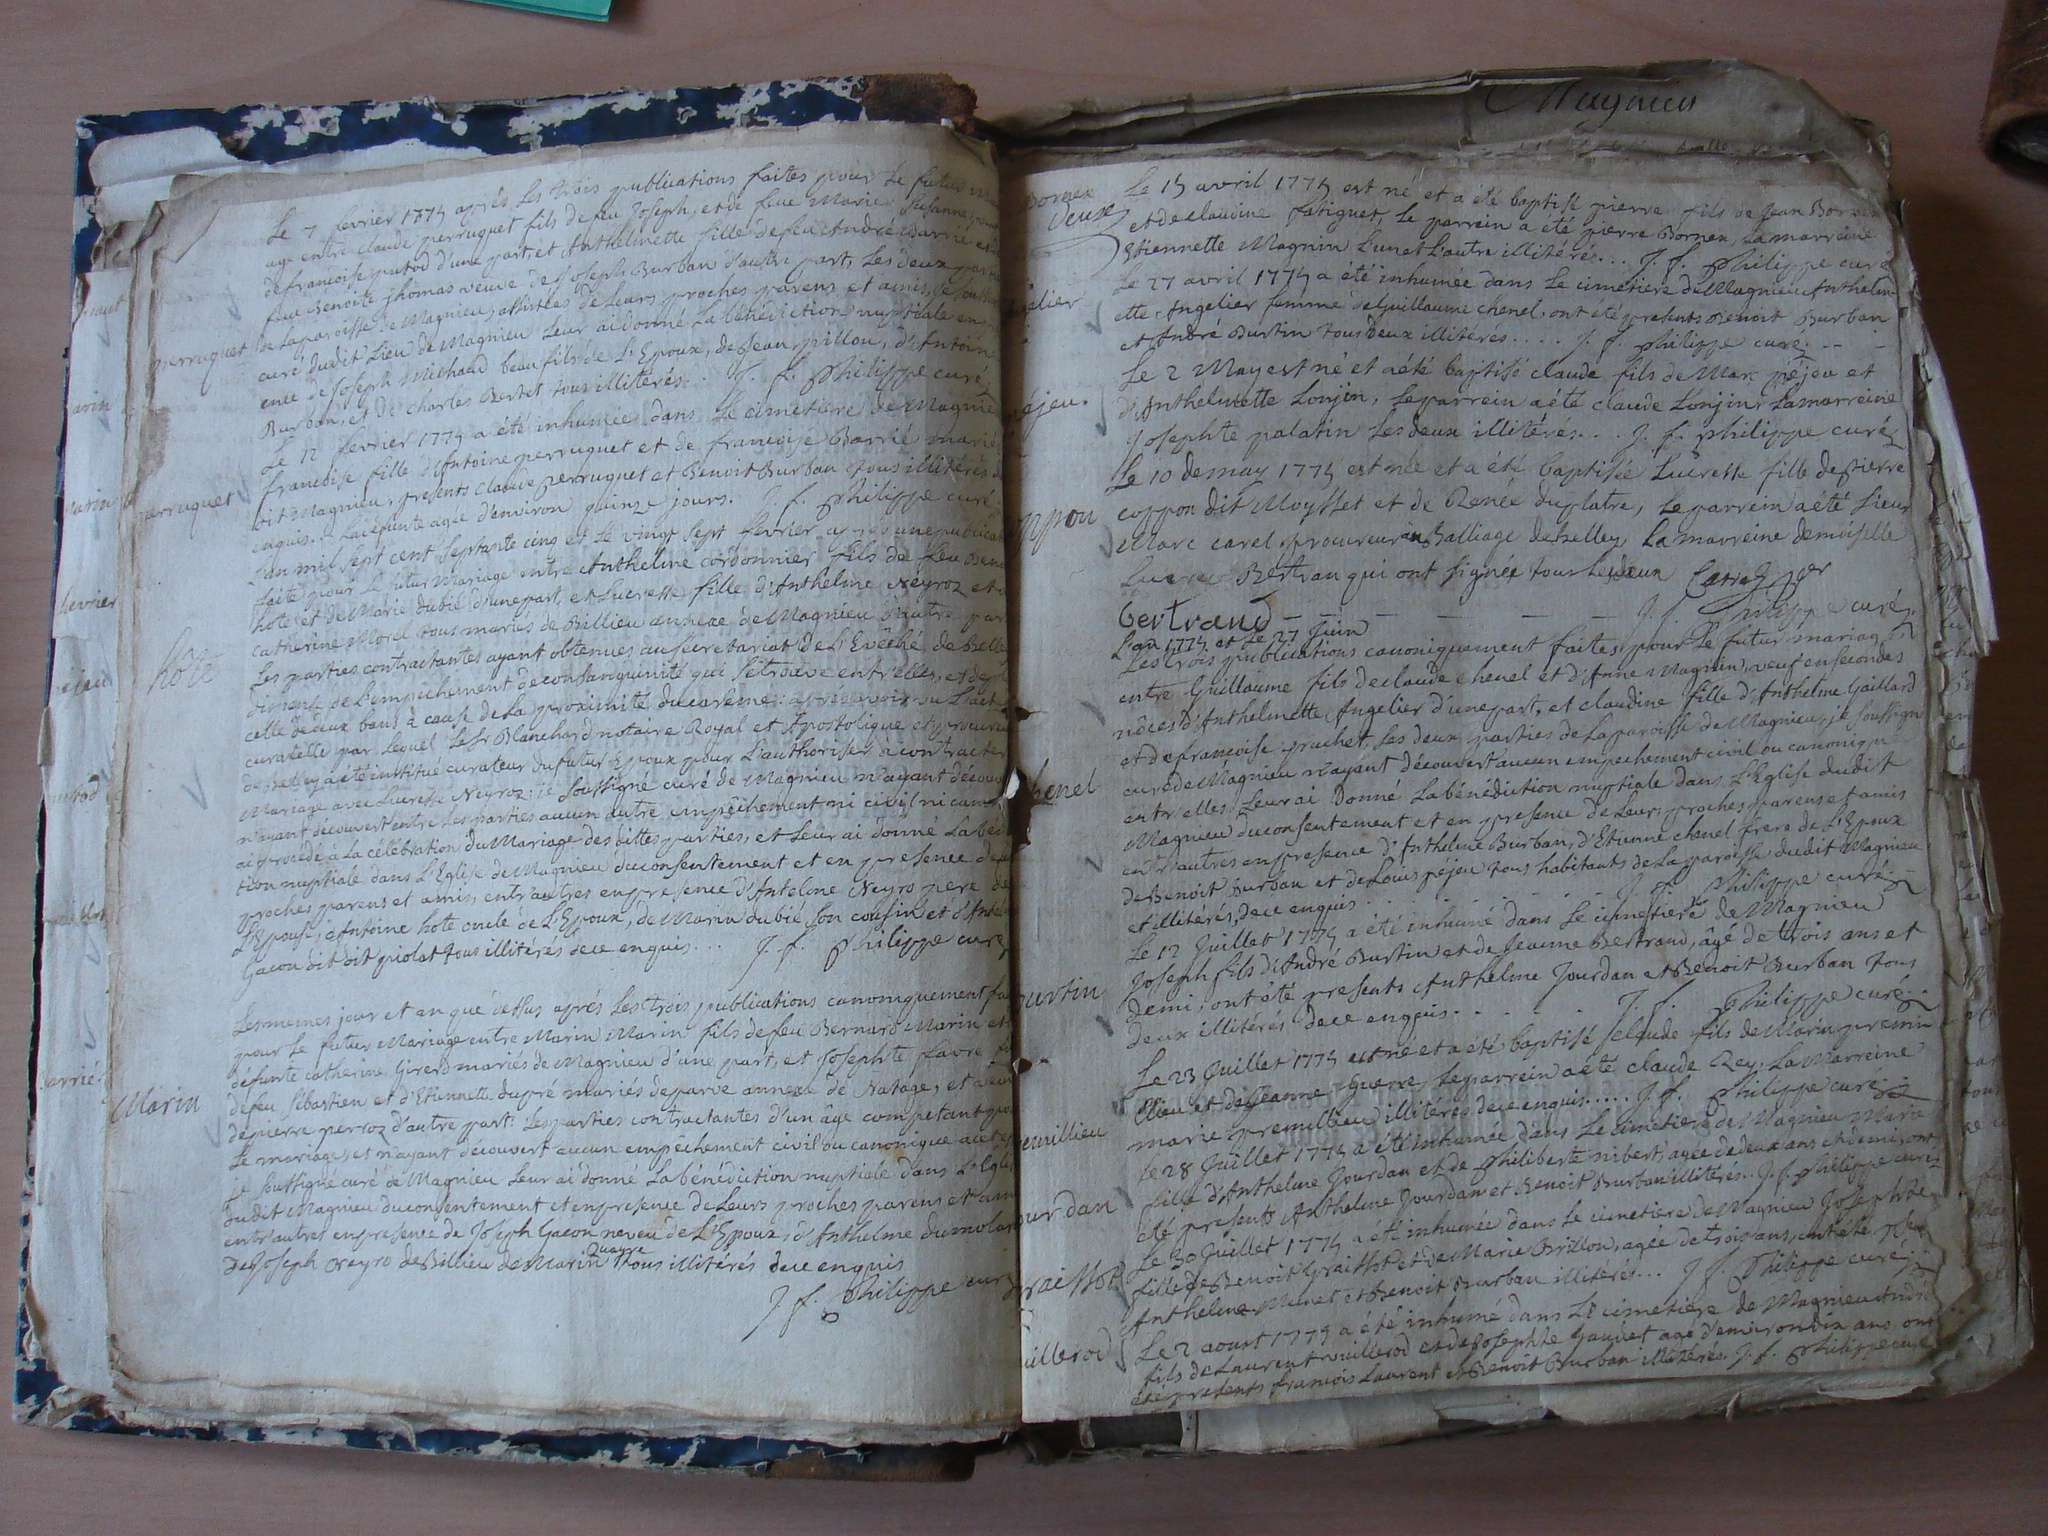 Le 7 fevrier 1775 après les trois publications faites pour le futur
age entre claude perruquet fils de feu Joseph, et de feue Marie Susanne
de francoise putod d'une part, et Anthelmette fille de feu André Barrié et de
feue Benoite Thomas veuve de Joseph Burban d'autre part, Les deux
de La paroisse de Magnieu, assistées de Leurs proches parens et amis, je
curé dudit Lieu de Magnieu Leur ai donné La bénédiction nuptiale en
ence de Joseph Michaud beau fils de L'Epoux, de Jean pillon, d'Antoine
Burban, et de charles Bertet tous illitérés... J. f. Philippe curé
perruquet
Le 12 fevrier 1775 a été inhumée dans Le cimetiere de Magnieu
francoise fille d'Antoine perruquet et de francoise Barrié mariés
dit Magnieu, presents claude perruquet et Benoit Burban tous illitérés de
enquis.. La défunte agée d'environ quinze jours. J. f. Philippe curé
perruquet
L'an mil sept cent septante cinq et le vingt sept fevrier après une publication
faite pour Le futur Mariage entre Anthelme cordonnier fils de feu
hote et de Marie dubié d'une part, et Lucresse fille d'Anthelme Neyroz et de
catherine Morel tous mariés de Billieu annexe de Magnieu d'autre part
Les parties contractantes ayant obtenues au secretariat de L'Evêché de Belley
dimense de L'empêchement de consanguinité qui se trouve entr'elles, et de
celle de deux bans à cause de La proximité du carême: après avoir vu L'acte
curatelle par Lequel Le Sr Blanchard notaire Royal et Apostolique et procureur
de Belley a été institué curateur du futur Epoux pour L'authoriser a contracter
Mariage avec Lucresse Neyroz: je soussigné curé de Magnieu n'ayant découv
n'ayant découvert entre Les parties aucun autre empêchement ni civil ni canon
ai procédé à La célébration du Mariage des dittes parties, et Leur ai donné La béné
tion nuptiale dans L'Eglise de Magnieu du consentement et en presence de
proches parens et amis, entr'autres en presence d'Antelme Neyro pere de
L'Epouse, d'Antoine hote oncle de L'Epoux, de Marin dubié son cousin et d'
Gacon dit piolat tous illitérés de ce enquis... J. f. Philippe curé
hote
Les memes jour et an que dessus après Les trois publications canoniquement
pour Le futur Mariage entre Marin Marin fils de feu Bernard Marin et
défunte catherine Girerd mariés de Magnieu d'une part, et Josephte favre
de feu Sébastien et d'Etiennette dupré mariés de parve annexe de Nattage, et veuve
de pierre perroz d'autre part: Les parties contractantes d'un âge competant pour
Le mariage, et n'ayant découvert aucun empêchement civil ou canonique
je soussigné curé de Magnieu Leur ai donné La bénédiction nuptiale dans L'Eglise
dudit Magnieu du consentement et en presence de Leurs proches parens et amis
entr'autres en presence de Joseph Gacon neveu de L'Epoux, d'Anthelme dumolar
de Joseph Neyro de Billieu de Marin Quarre tous illitérés de ce enquis
J. f. Philippe curé
Marin
Magnieu
Le 15 avril 1775 est né et a été baptisé pierre fils de Jean Bornex
et de claudine fatiguet, Le parrein a été pierre Bornex, La marreine
Etiennette Magnin L'un et L'autre illitérés... J. f. Philippe curé
Bornex
deux
Le 27 avril 1775 a été inhumée dans Le cimetiere de Magnieu Anthelm
ette Angelier femme de Guillaume chenel, ont été presents Benoit Burban
et André Burtin tous deux illitérés.... J. f. Philippe curé
gelier
Le 2 May est né et a été baptisé claude fils de Marc péjeu et
d'Anthelmette Lonjin, Le parrein a été claude Lonjin, La marreine
Josephte palatin Les deux illitérés... J. f. Philippe curé
éjeu.
Le 10 de may 1775 est née et a été baptisée Lucresse fille de Pierre
coppon dit Moysset et de Renée duplatre, Le parrein a été Sieur
Marc carel procureur au Balliage de Belley La marreine demoiselle
Lucrece Bertran qui ont signée tous Les deux Carrel
bertrand J. f. Philippe curé
ppon
L'an 1775 et Le 27 Juin
Les trois publications canoniquement faites pour Le futur mariage
entre Guillaume fils de claude chenel et d'Anne Magnin, veuf en secondes
nôces d'Anthelmette Angelier d'une part, et claudine fille d'Anthelme Gaillard
et de francoise pruchet, Les deux parties de La paroisse de Magnieu, je soussigné
curé de Magnieu n'ayant découvert aucun empechement civil ou canonique
entr'elles, Leur ai donné La bénédiction nuptiale dans L'Eglise dudit
Magnieu du consentement et en presence de Leurs proches parens et amis
entr'autres en presence d'Anthelme Burban, d'Etienne chenel frere de L'Epoux
de Benoit Burban et de Louis péjeu tous habitants de La paroisse dudit Magnieu
et illitérés de ce enquis J. f. Philippe curé
henel
Le 12 Juillet 1775 a été inhumé dans Le cimetiere de Magnieu
Joseph fils d'André Burtin et de Jeanne Bertrand, âgé de trois ans et
demi, ont été presents Anthelme Jourdan et Benoit Burban tous
deux illitérés de ce enquis.... J. f. Philippe curé
urtin
Le 23 Juillet 1775 est né et a été baptisé claude fils de Marin premil
lieu et de Jeanne Guerre, Le parrein a été claude Rey, La Marreine
marie premillieu illitérés de ce enquis..... J. f. Philippe curé
emillieu
Le 28 Juillet 1775 a été inhumée dans Le cimetiere de Magnieu Marie
fille d'Anthelme Jourdan et de Philiberte nibert, agée de deux ans et demi, ont
été presents Anthelme Jourdan et Benoit Burban illitérés. J. f. Philippe curé
ourdan
Le 30 Juillet 1775 a été inhumée dans Le cimetiere de Magnieu Josephte
fille de Benoit Graissot et de Marie Brillon, agée de trois ans, ont été presens
Anthelme Munet et Benoit Burban illitérés... J. f. Philippe curé
raissot
Le 2 aoust 1775 a été inhumé dans Le cimetiere de Magnieu André
fils de Laurent vuillerod et de Josephte Gaudet agé d'environ dix ans, ont
été presents francois Laurent et Benoit Burban illitérés. J. f. Philippe curé
uillerod